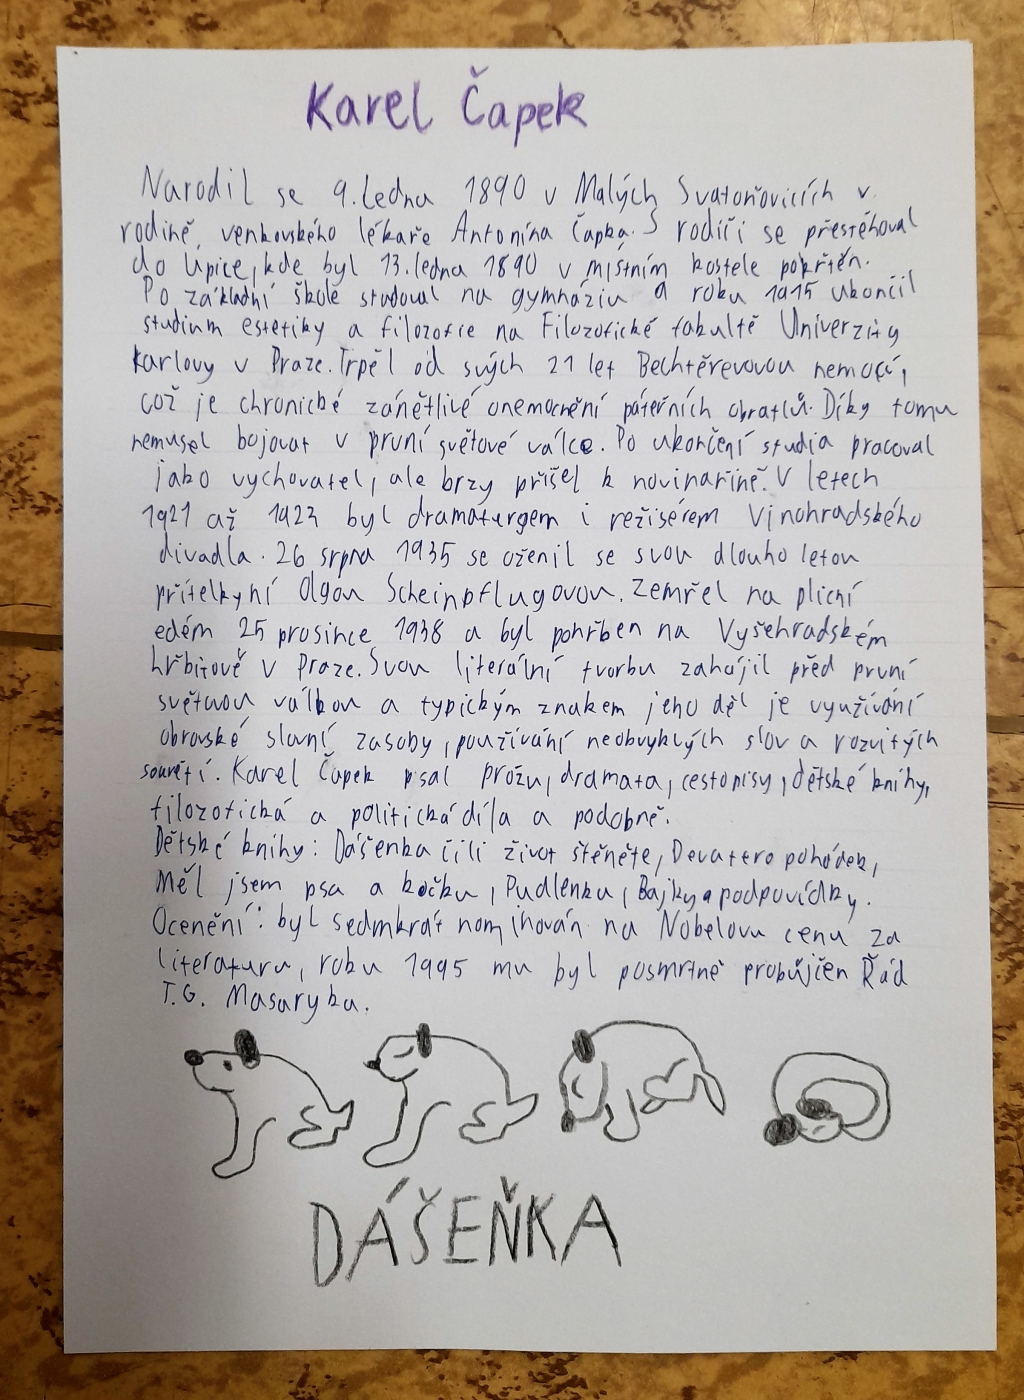 Karel Čapek
Narodil se 9. ledna 1890 v Malých Svatoňovicích v
rodině, venkovského lékaře Antonína Čapka. S rodiči se přestěhoval
do Úpice, kde byl 13. ledna 1890 v místním kostele pokřtěn.
Po základní škole studoval na gymnáziu a roku 1915 ukončil
studium estetiky a filozofie na Filozofické fakultě Univerzity
Karlovy v Praze. Trpěl od svých 21 let Bechtěrevovou nemocí,
což je chronické zánětlivé onemocnění páteřních obratlů. Díky tomu
nemusel bojovat v první světové válce. Po ukončení studia pracoval
jako vychovatel, ale brzy přišel k novinařině. V letech
1921 až 1923 byl dramaturgem i režisérem Vinohradského
divadla. 26 srpna 1935 se oženil se svou dlouho letou
přítelkyní Olgou Scheinpflugovou. Zemřel na plicní
edém 25 prosince 1938 a byl pohřben na Vyšehradském
hřbitově v Praze. Svou literální tvorbu zahájil před první
světovou válkou a typickým znakem jeho děl je využívání
obrovské slovní zasoby, používání neobvyklých slov a rozvitých
souvětí. Karel Čapek psal prózu, dramata, cestopisy, dětské knihy,
filozofická a politická díla a podobně.
Dětské knihy: Dášenka čili život štěněte, Devatero pohádek,
Měl jsem psa a kočku, Pudlenku, Bajky a podpovídky.
Ocenění: byl sedmkrát nominován na Nobelovu cenu za
literaturu, roku 1995 mu byl posmrtně propůjčen Řád
T.G. Masaryka.
DÁŠEŇKA